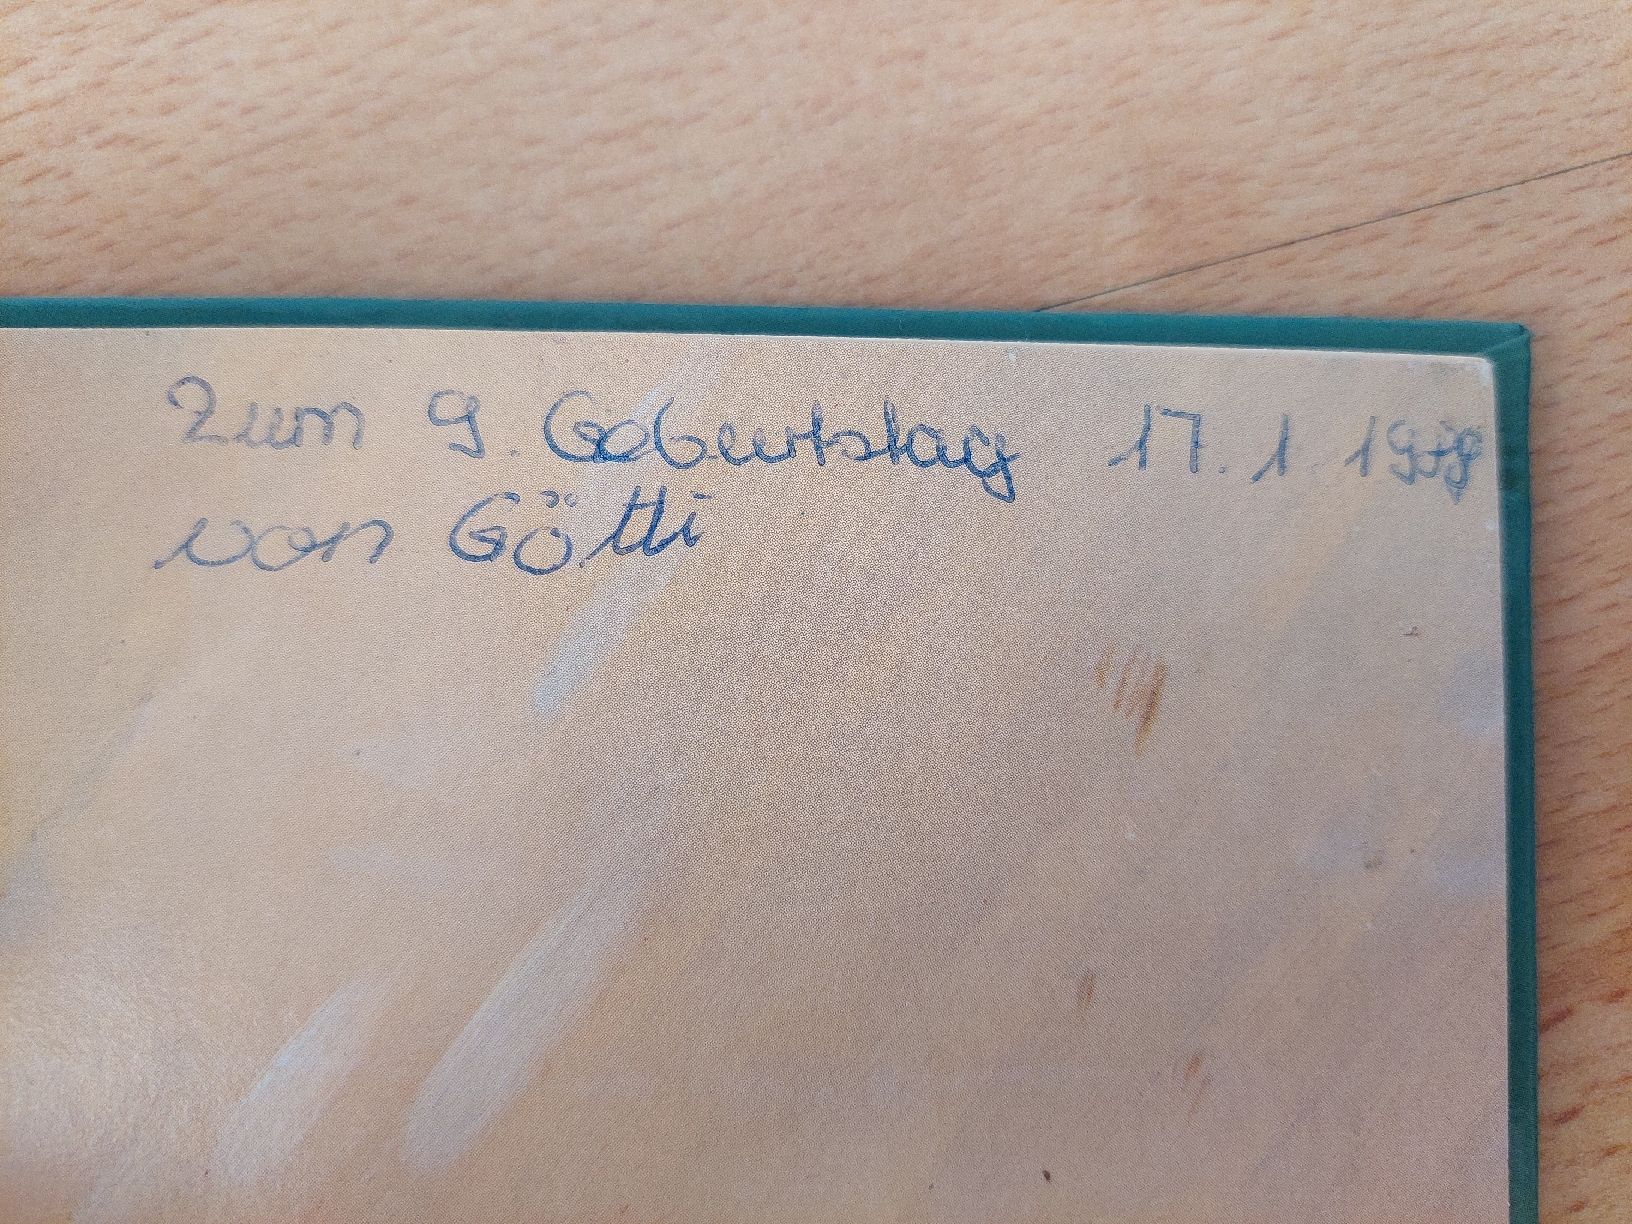 Zum 9. Geburtstag 17. 1.
von Götti